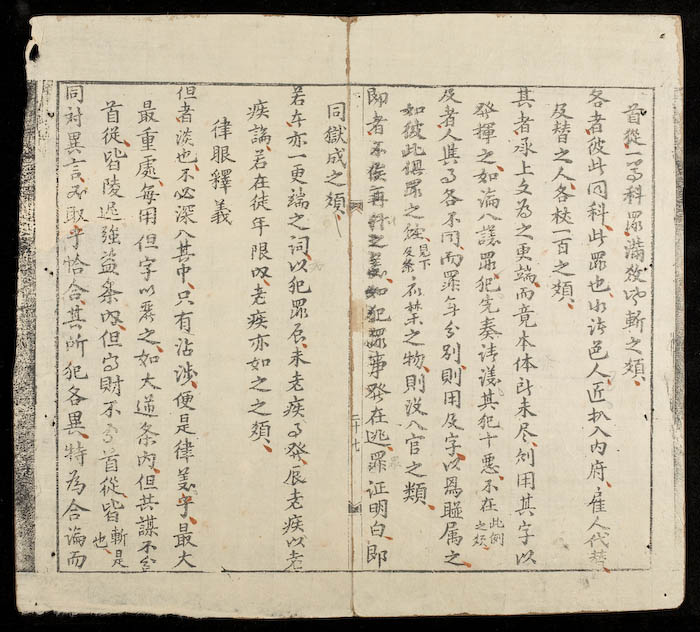 首從一等科罪滿數皆斬之類
各者彼此同科此罪也如諸色人匠扒入内府雇人代替
及替之人各杖一百之類
其者承上文為之更端而竟本体所未尽則用其字以
發揮之如論八議罪犯先奏請議其犯十悪不在此例之類
及者人與事各不同而罪年分別則用及字以爲聫属之
如彼此俱罪之贓見下及條應禁之物則没入官之類
即者不俟再 之 如犯罪事發在逃罪証明白即
二十七
同獄成之類
若左亦一更端之詞以犯罪辰未老疾事發辰老疾以老
疾論若在徒年限内老疾亦如之之類
律眼釋義
但者淡也不必深入其中只有沾涉便是律義字最大
最重處每用但字以 之如大逆条内但共謀不分
首從皆陵遅強盗条内但得財不分首從皆斬是也
同対異言 取乎恰合其所犯各異特為合論而